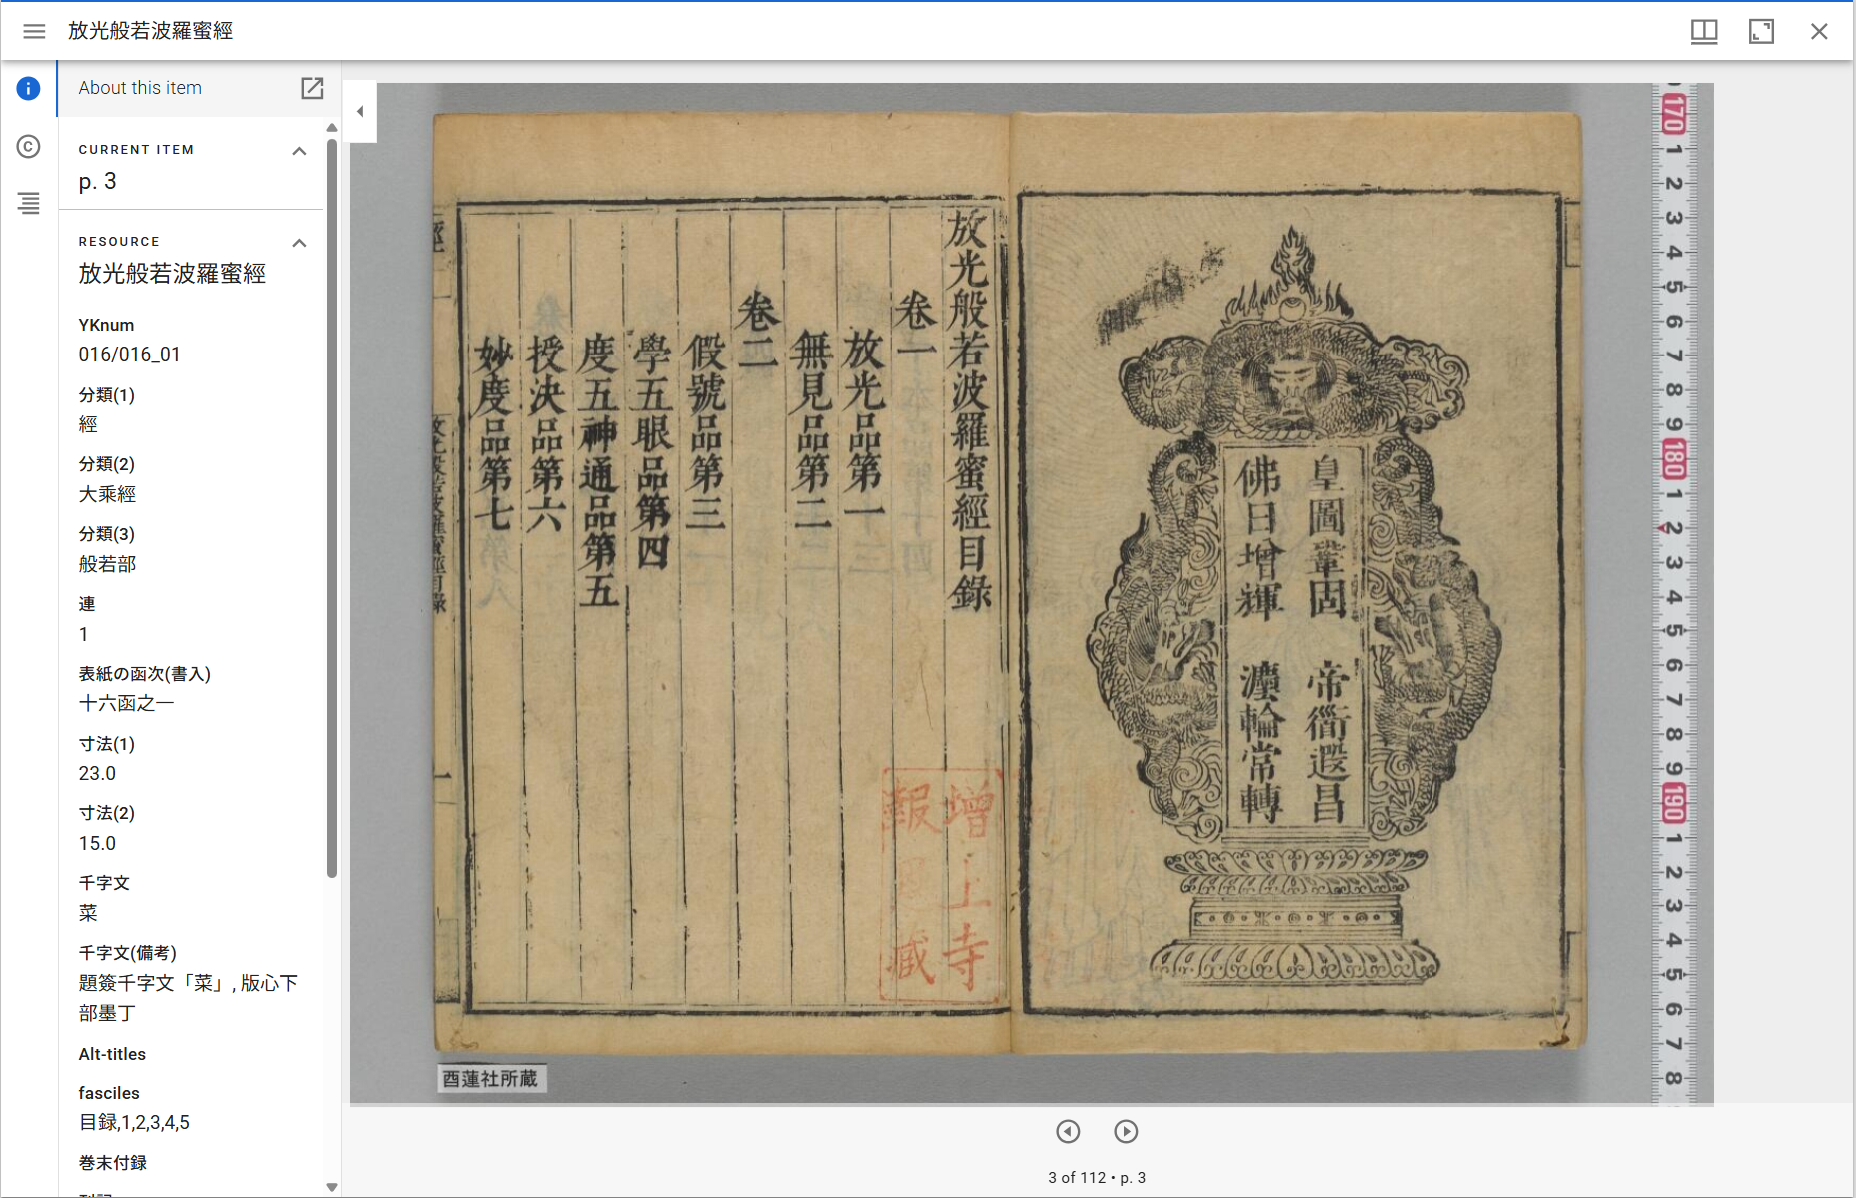 放光般若波羅蜜經
About this item
CURRENT ITEM
p. 3
RESOURCE
放光般若波羅蜜經
YKnum
016/016_01
分類(1)
經
分類(2)
大乘經
分類(3)
般若部
連
1
表紙の函次(書入)
十六函之一
寸法(1)
23.0
寸法(2)
15.0
千字文
菜
千字文(備考)
題簽千字文「菜」, 版心下
部墨丁
Alt-titles
fasciles
目録,1,2,3,4,5
巻末付録
皇圖鞏固 帝衜遐昌
佛日增輝 灋輪常轉
放光般若波羅蜜經目錄
卷一
放光品第一
無見品第二
卷二
假號品第三
學五眼品第四
度五神通品第五
授決品第六
妙度品第七
增上寺
報 藏
酉蓮社所蔵
170 1 2 3 4 5 6 7 8 9 180 1 2 3 4 5 6 7 8 9 190 1 2 3 4 5 6 7 8
3 of 112 • p. 3